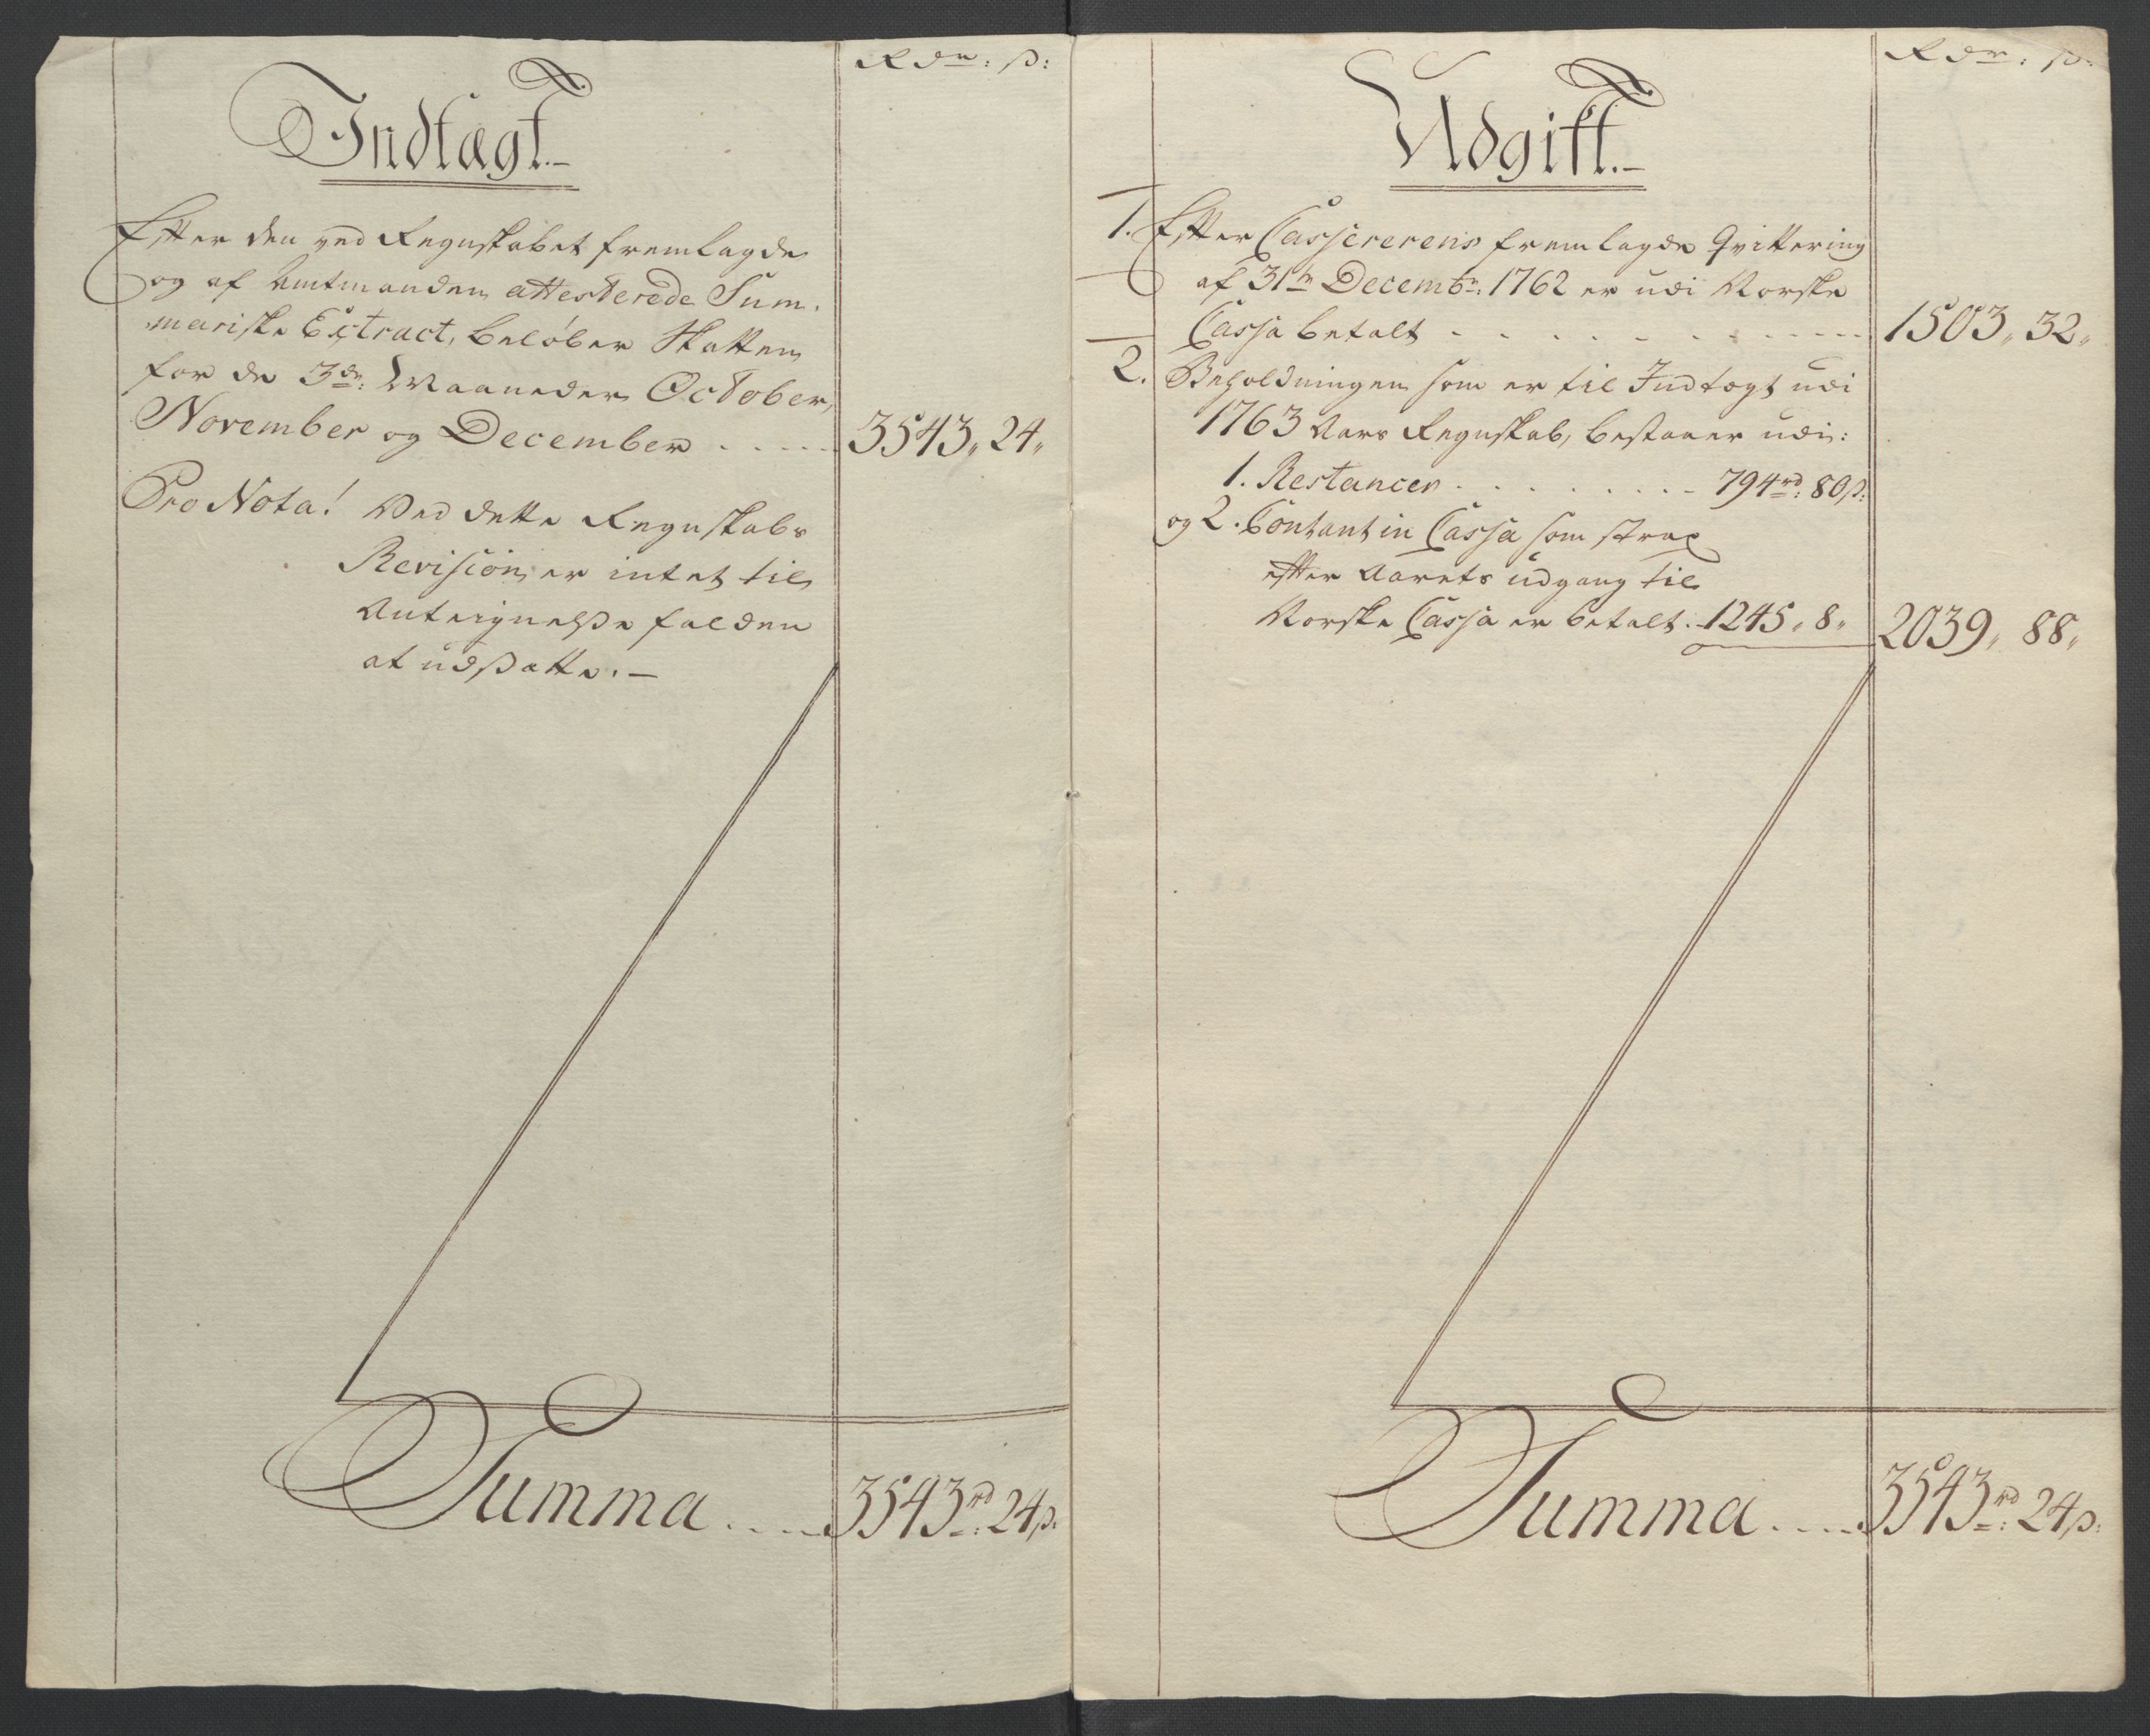 Rdr: ß:
Indtægt.-
Efter den ved Regnskabet fremlagde
og af Amtmanden attesterede Sum-
mariske Extract, beløber Skatten
for de 3de: Maaneder October,
November og December ..... 3543 „ 24 „
Pro Nota! Ved dette Regnskabs
Revision er intet til
Antegnelße falden
at udßætte. -
Summa .... 3543rd: 24ß.
Rdr: ß:
Udgift.-
1. Efter Casserererens fremlagde Qvittering
af 31te Decembr: 1762 er udi Norske
Cassa betalt . . . . . . . . . 1503 „ 32 „
2. Beholdningen som er til Indtægt udi
1763 Aars Regnskab, bestaaer udi:
1. Restancer . . . . . . . . 794rd: 80ß:
og 2. Contant in Cassa som strax
efter Aarets udgang til
Norske Cassa er betalt . 1245 „ 8 „ 2039 „ 88 „
Summa .... 3543rd: 24ß: